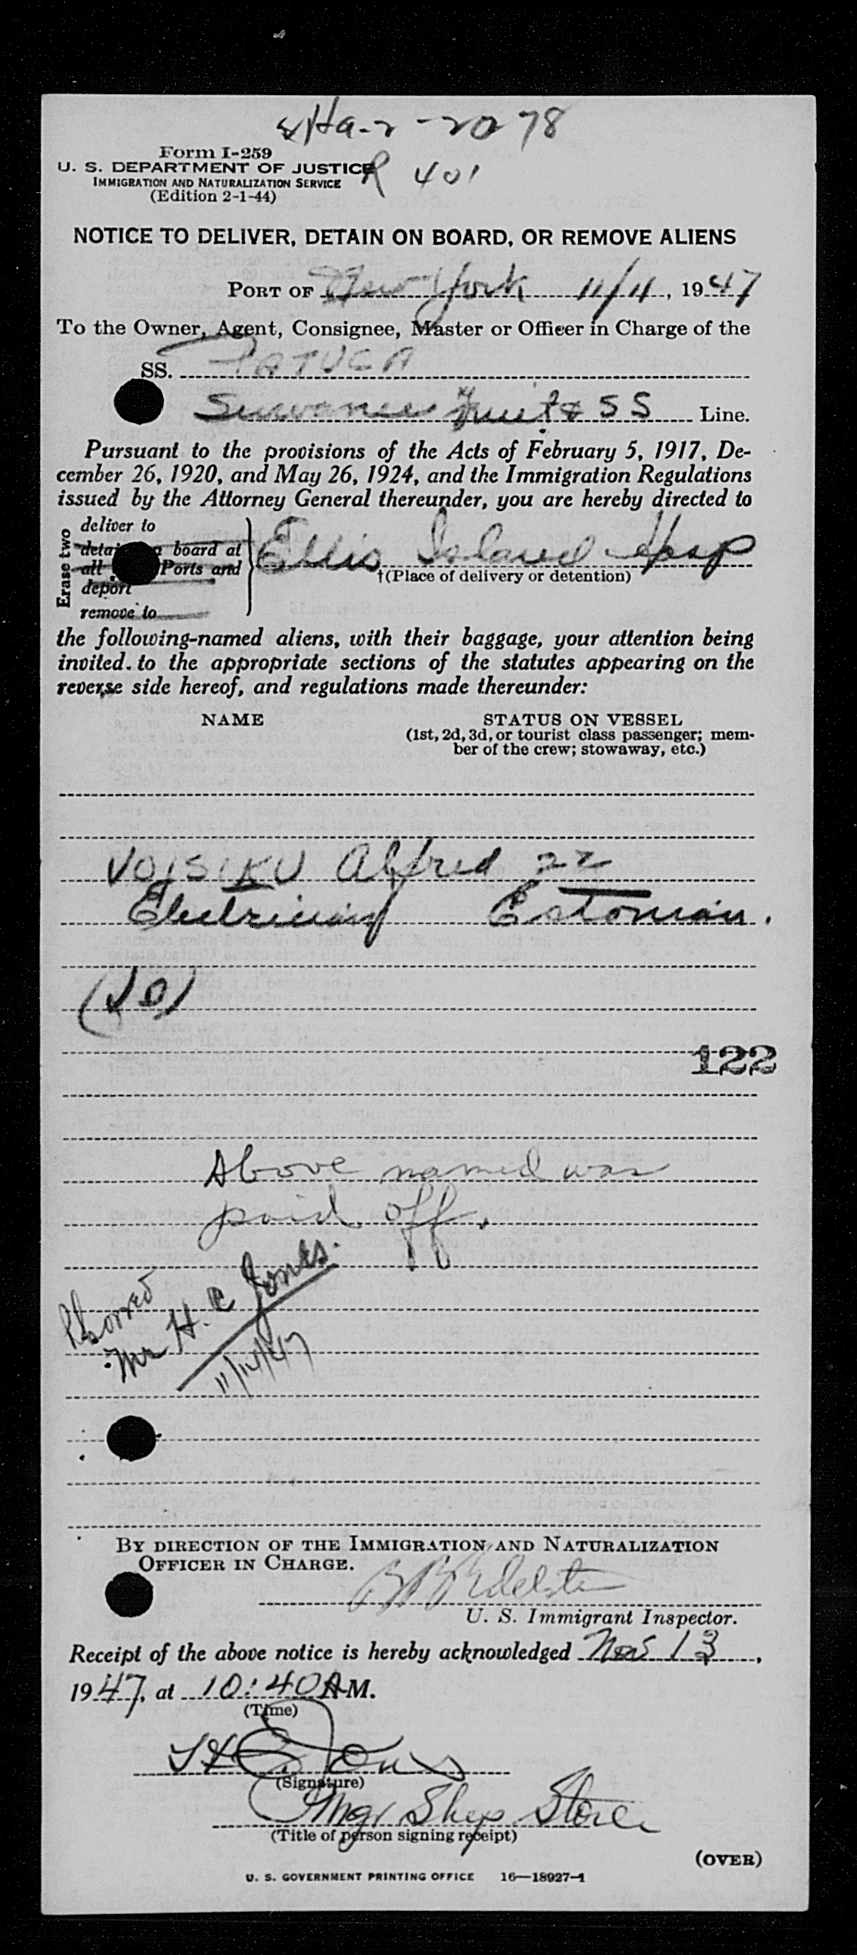 -2-2078
Form I-259
U. S. DEPARTMENT OF JUSTICE
R 401
IMMIGRATION AND NATURALIZATION SERVICE
(Edition 2-1-44)
NOTICE TO DELIVER, DETAIN ON BOARD, OR REMOVE ALIENS
PORT OF New York 11/11, 1947
To the Owner, Agent, Consignee, Master or Officer in Charge of the
SS. PATUCA
Suwannee Fruit & SS Line.
Pursuant to the provisions of the Acts of February 5, 1917, De-
cember 26, 1920, and May 26, 1924, and the Immigration Regulations
issued by the Attorney General thereunder, you are hereby directed to
Erase two
deliver to
board at
all Ports and
deport
remove to
Ellis Island Hosp
†(Place of delivery or detention)
the following-named aliens, with their baggage, your attention being
invited to the appropriate sections of the statutes appearing on the
reverse side hereof, and regulations made thereunder:
NAME
STATUS ON VESSEL
(1st, 2d, 3d, or tourist class passenger; mem-
ber of the crew; stowaway, etc.)
VOISIKU Alfred 22
Electrician Estonian.
122
Above named was
paid off.
Phoned
Mr H. C Jones.
11/14/47
BY DIRECTION OF THE IMMIGRATION AND NATURALIZATION
OFFICER IN CHARGE.
U. S. Immigrant Inspector.
Receipt of the above notice is hereby acknowledged Nov 13,
1947, at 10:40 A M.
(Time)
H C Jones
(Signature)
Mgr Ship Store
(Title of person signing receipt)
(OVER)
U. S. GOVERNMENT PRINTING OFFICE 16—18927-1